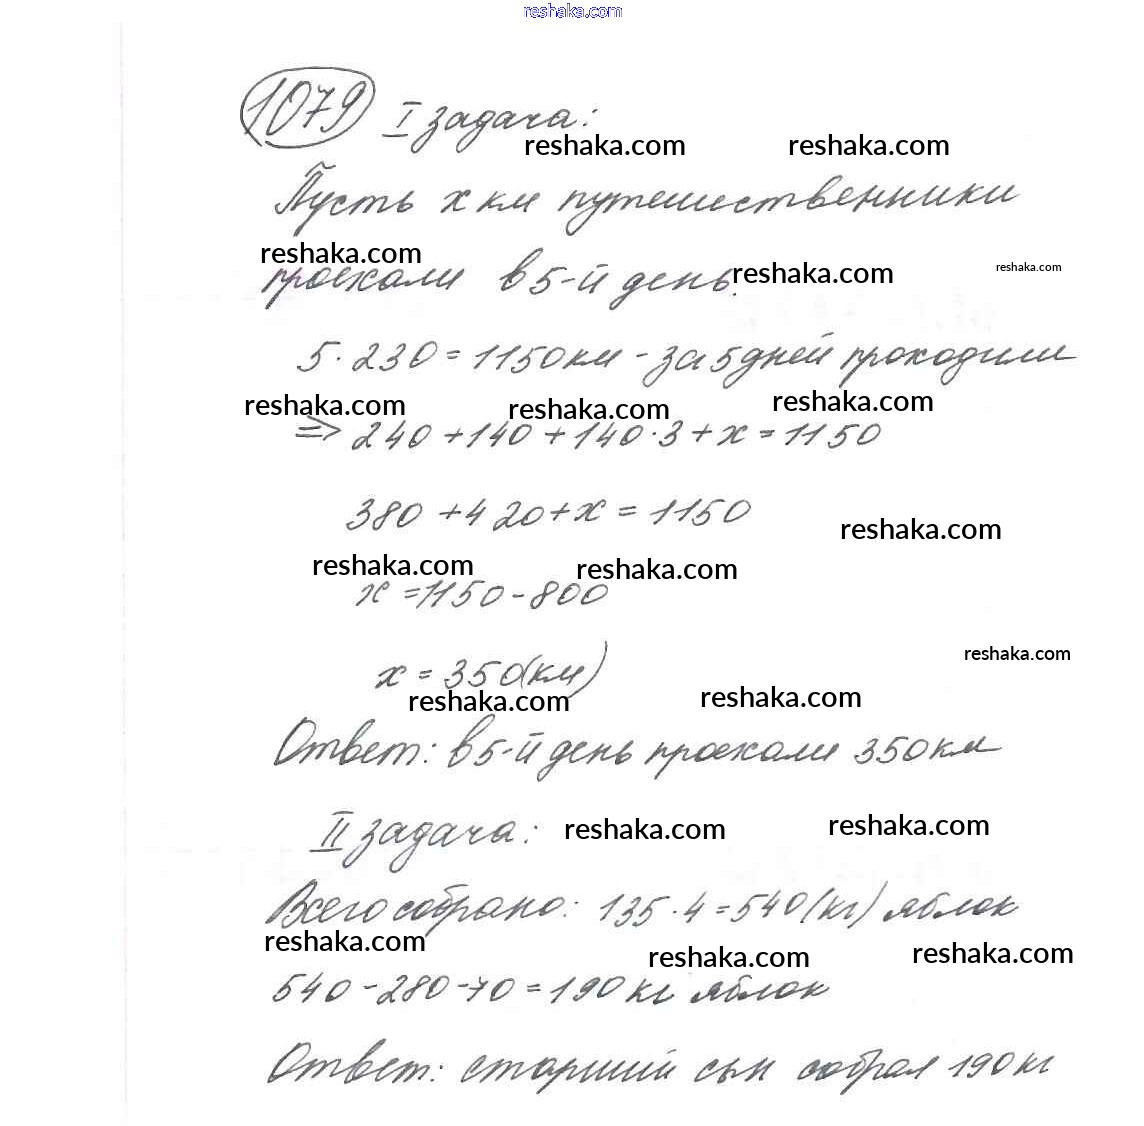 reshaka.com
1079 I задача:
reshaka.com reshaka.com
Пусть х км путешественники
reshaka.com reshaka.com reshaka.com
проехали в 5-й день.
5·230=1150км - за 5 дней проходили
reshaka.com reshaka.com reshaka.com
=> 240+140+140·3+х=1150
380+420+х=1150
reshaka.com
reshaka.com reshaka.com
х=1150-800
reshaka.com
х=350(км)
reshaka.com reshaka.com
Ответ: в 5-й день проехали 350км
II задача:
reshaka.com reshaka.com
Всего собрано: 135·4=540(кг) яблок
reshaka.com reshaka.com reshaka.com
540-280-70=190кг яблок
Ответ: старший сын собрал 190кг